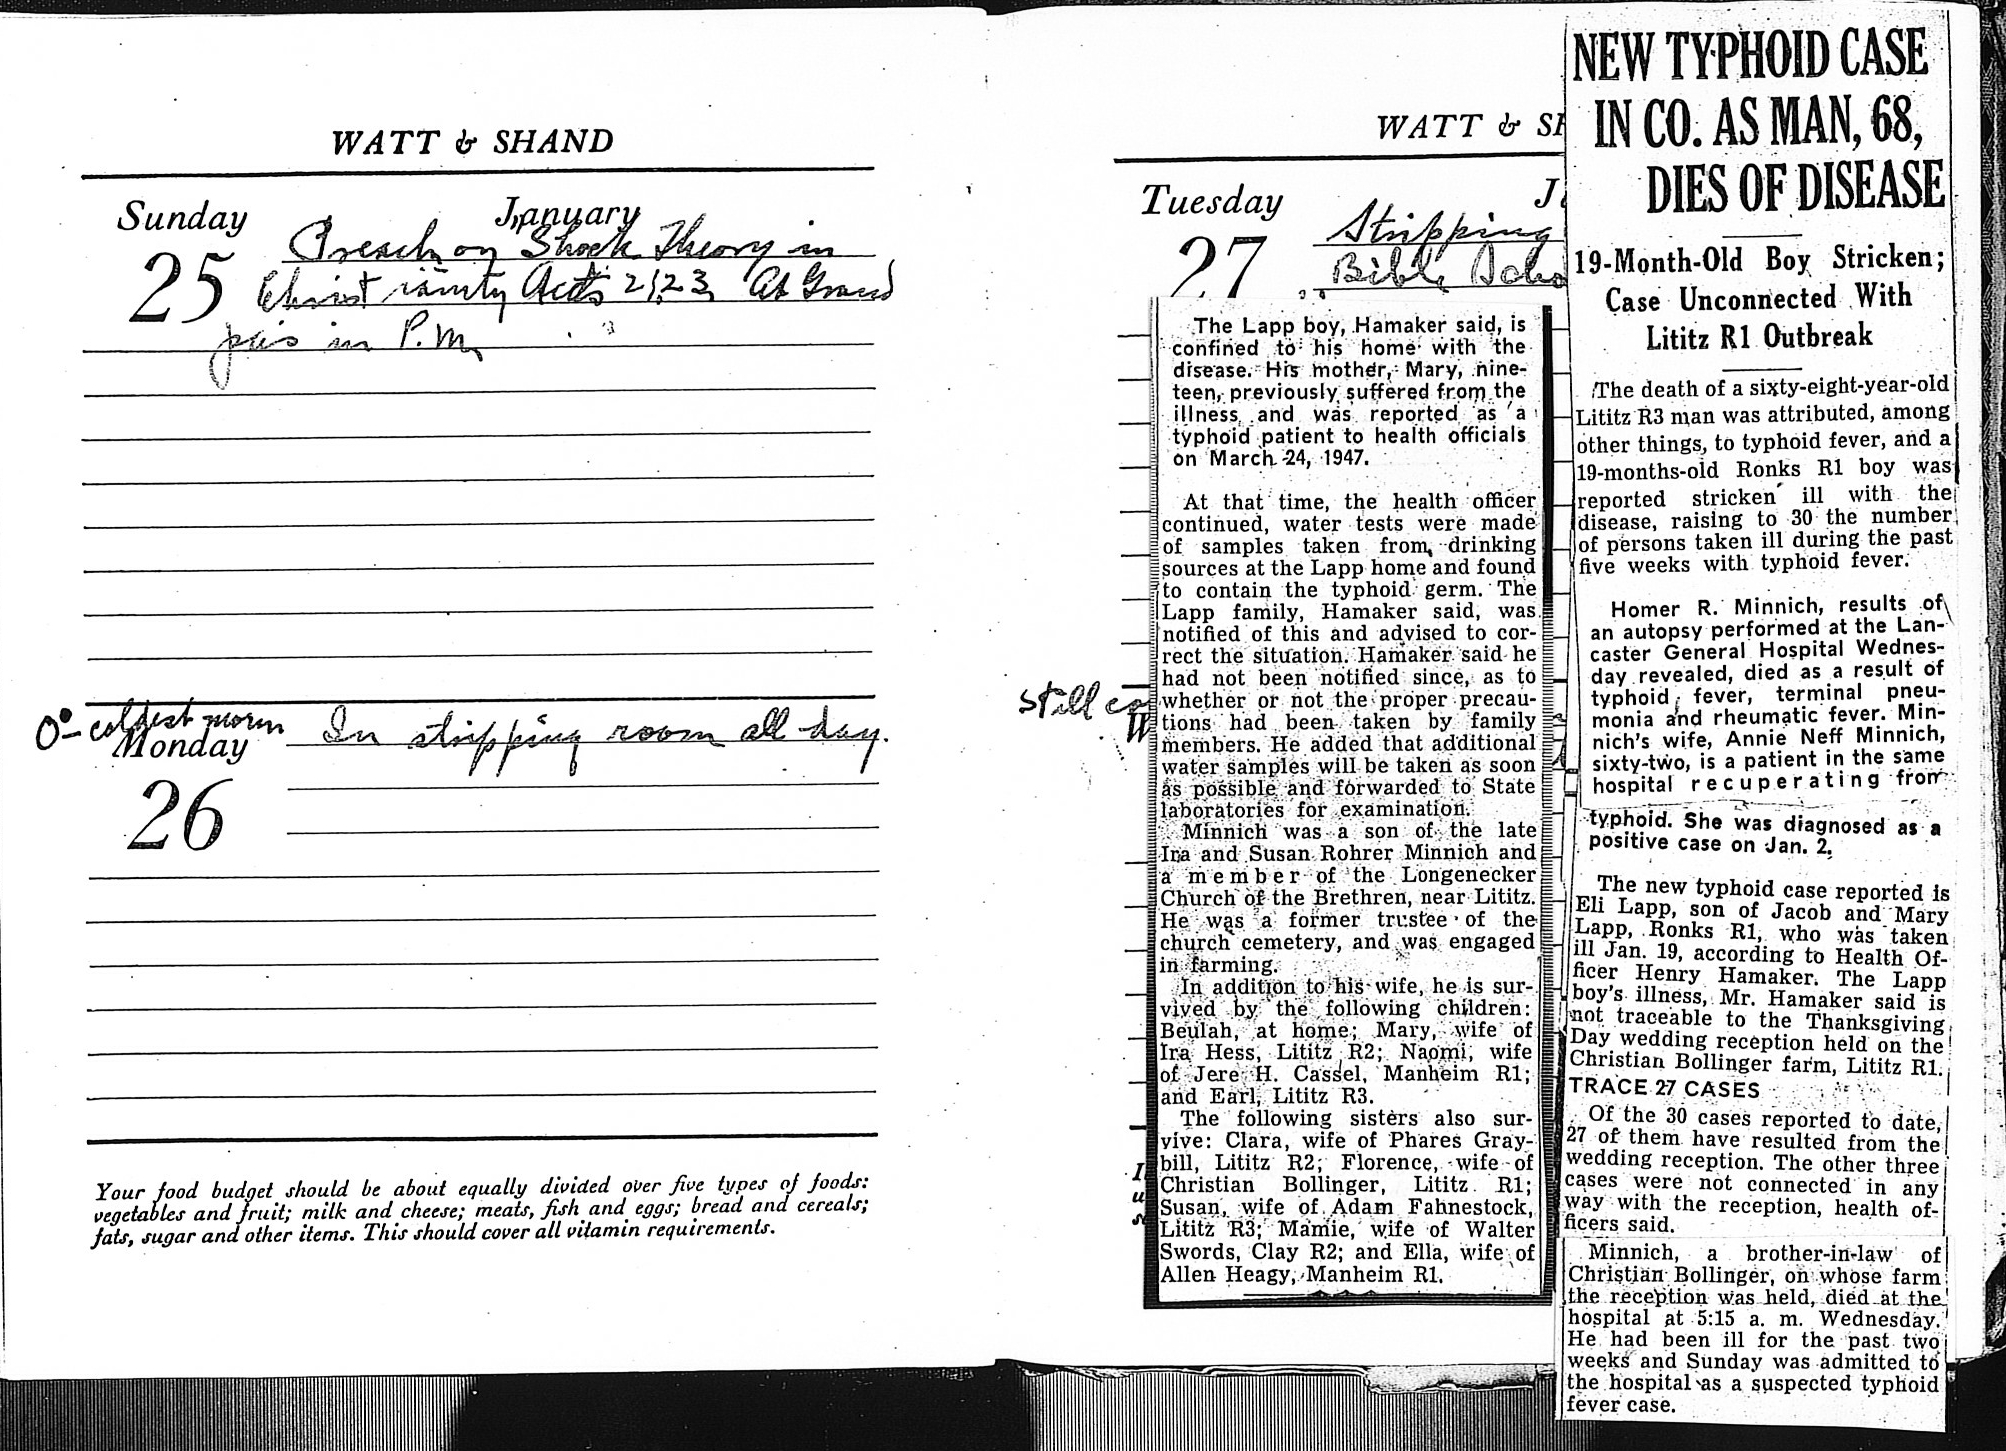 WATT & SHAND
Sunday January
25
Preach on Shock Theory in
Christianity Acts 2:23 At Grand
pa's in P.M.
0° - coldest morn
Monday
26
In stripping room all day.
Your food budget should be about equally divided over five types of foods:
vegetables and fruit; milk and cheese; meats, fish and eggs; bread and cereals;
fats, sugar and other items. This should cover all vitamin requirements.
WATT &
Tuesday
27
Stripping
Bible
Still
NEW TYPHOID CASE
IN CO. AS MAN, 68,
DIES OF DISEASE
19-Month-Old Boy Stricken;
Case Unconnected With
Lititz R1 Outbreak
The death of a sixty-eight-year-old
Lititz R3 man was attributed, among
other things, to typhoid fever, and a
19-months-old Ronks R1 boy was
reported stricken ill with the
disease, raising to 30 the number
of persons taken ill during the past
five weeks with typhoid fever.
Homer R. Minnich, results of
an autopsy performed at the Lan-
caster General Hospital Wednes-
day revealed, died as a result of
typhoid fever, terminal pneu-
monia and rheumatic fever. Min-
nich's wife, Annie Neff Minnich,
sixty-two, is a patient in the same
hospital recuperating from
typhoid. She was diagnosed as a
positive case on Jan. 2.
The new typhoid case reported is
Eli Lapp, son of Jacob and Mary
Lapp, Ronks R1, who was taken
ill Jan. 19, according to Health Of-
ficer Henry Hamaker. The Lapp
boy's illness, Mr. Hamaker said is
not traceable to the Thanksgiving
Day wedding reception held on the
Christian Bollinger farm, Lititz R1.
TRACE 27 CASES
Of the 30 cases reported to date,
27 of them have resulted from the
wedding reception. The other three
cases were not connected in any
way with the reception, health of-
ficers said.
Minnich, a brother-in-law of
Christian Bollinger, on whose farm
the reception was held, died at the
hospital at 5:15 a. m. Wednesday.
He had been ill for the past two
weeks and Sunday was admitted to
the hospital as a suspected typhoid
fever case.
The Lapp boy, Hamaker said, is
confined to his home with the
disease. His mother, Mary, nine-
teen, previously suffered from the
illness and was reported as a
typhoid patient to health officials
on March 24, 1947.
At that time, the health officer
continued, water tests were made
of samples taken from drinking
sources at the Lapp home and found
to contain the typhoid germ. The
Lapp family, Hamaker said, was
notified of this and advised to cor-
rect the situation. Hamaker said he
had not been notified since, as to
whether or not the proper precau-
tions had been taken by family
members. He added that additional
water samples will be taken as soon
as possible and forwarded to State
laboratories for examination.
Minnich was a son of the late
Ira and Susan Rohrer Minnich and
a member of the Longenecker
Church of the Brethren, near Lititz.
He was a former trustee of the
church cemetery, and was engaged
in farming.
In addition to his wife, he is sur-
vived by the following children:
Beulah, at home; Mary, wife of
Ira Hess, Lititz R2; Naomi, wife
of Jere H. Cassel, Manheim R1;
and Earl, Lititz R3.
The following sisters also sur-
vive: Clara, wife of Phares Gray-
bill, Lititz R2; Florence, wife of
Christian Bollinger, Lititz R1;
Susan, wife of Adam Fahnestock,
Lititz R3; Mamie, wife of Walter
Swords, Clay R2; and Ella, wife of
Allen Heagy, Manheim R1.